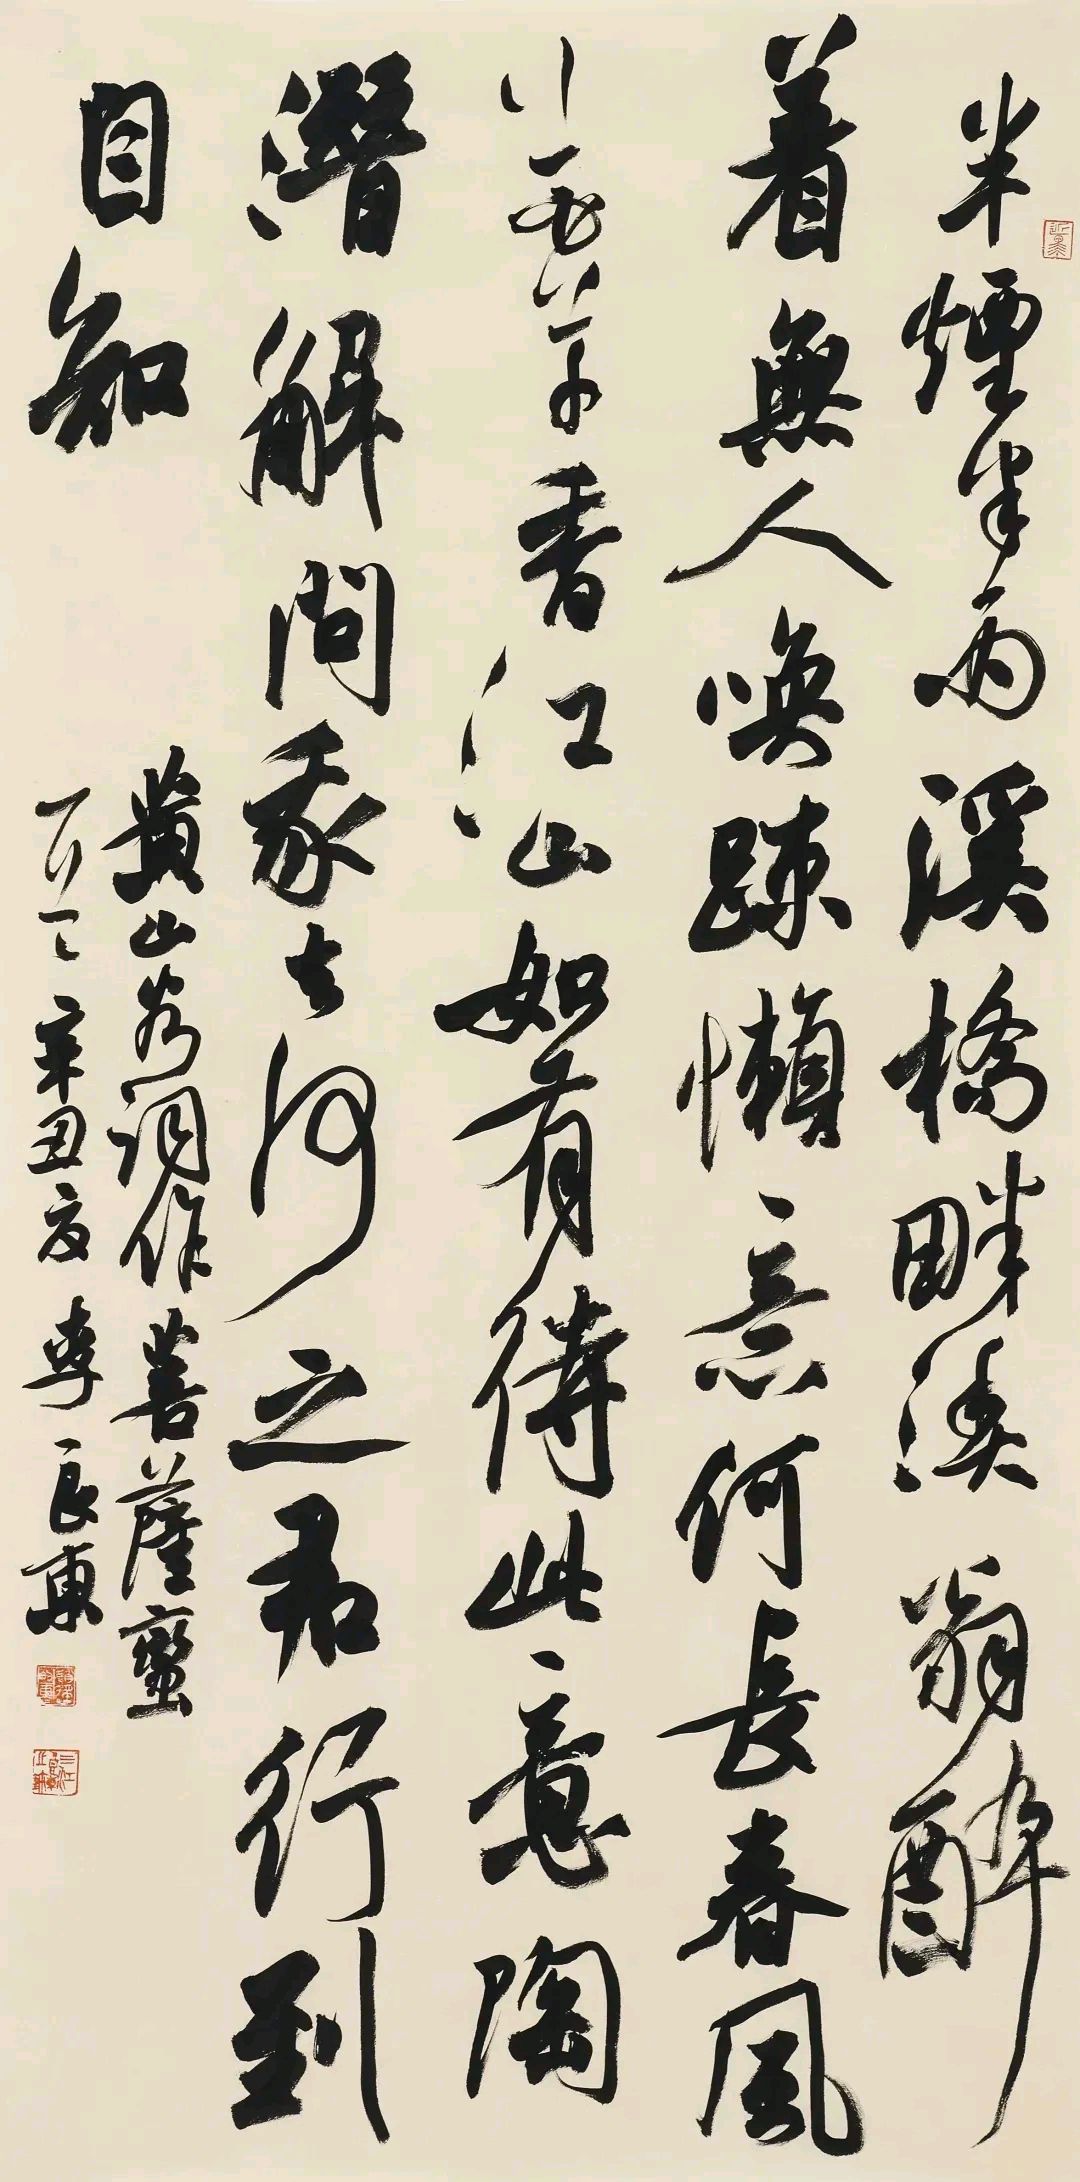 半煙半雨溪橋畔漁翁醉
着無人喚踈懶意何長春風
花草香江山如有待此意陶
潛解問我去何之君行到
自知
黃山谷詞作菩薩蠻
辛丑夏李良東